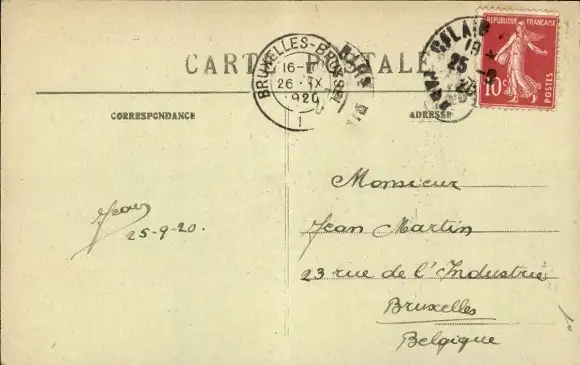 CARTE POSTALE
BRUXELLES-BRUSSEL
16-
26 IX
1920
1
CALAIS
19
25 -9
20
REPUBLIQUE FRANÇAISE
10c
POSTES
CORRESPONDANCE
ADRESSE
Jean
25-9-20.
Monsieur
Jean Martin
23 rue de l'Industrie
Bruxelles
Belgique